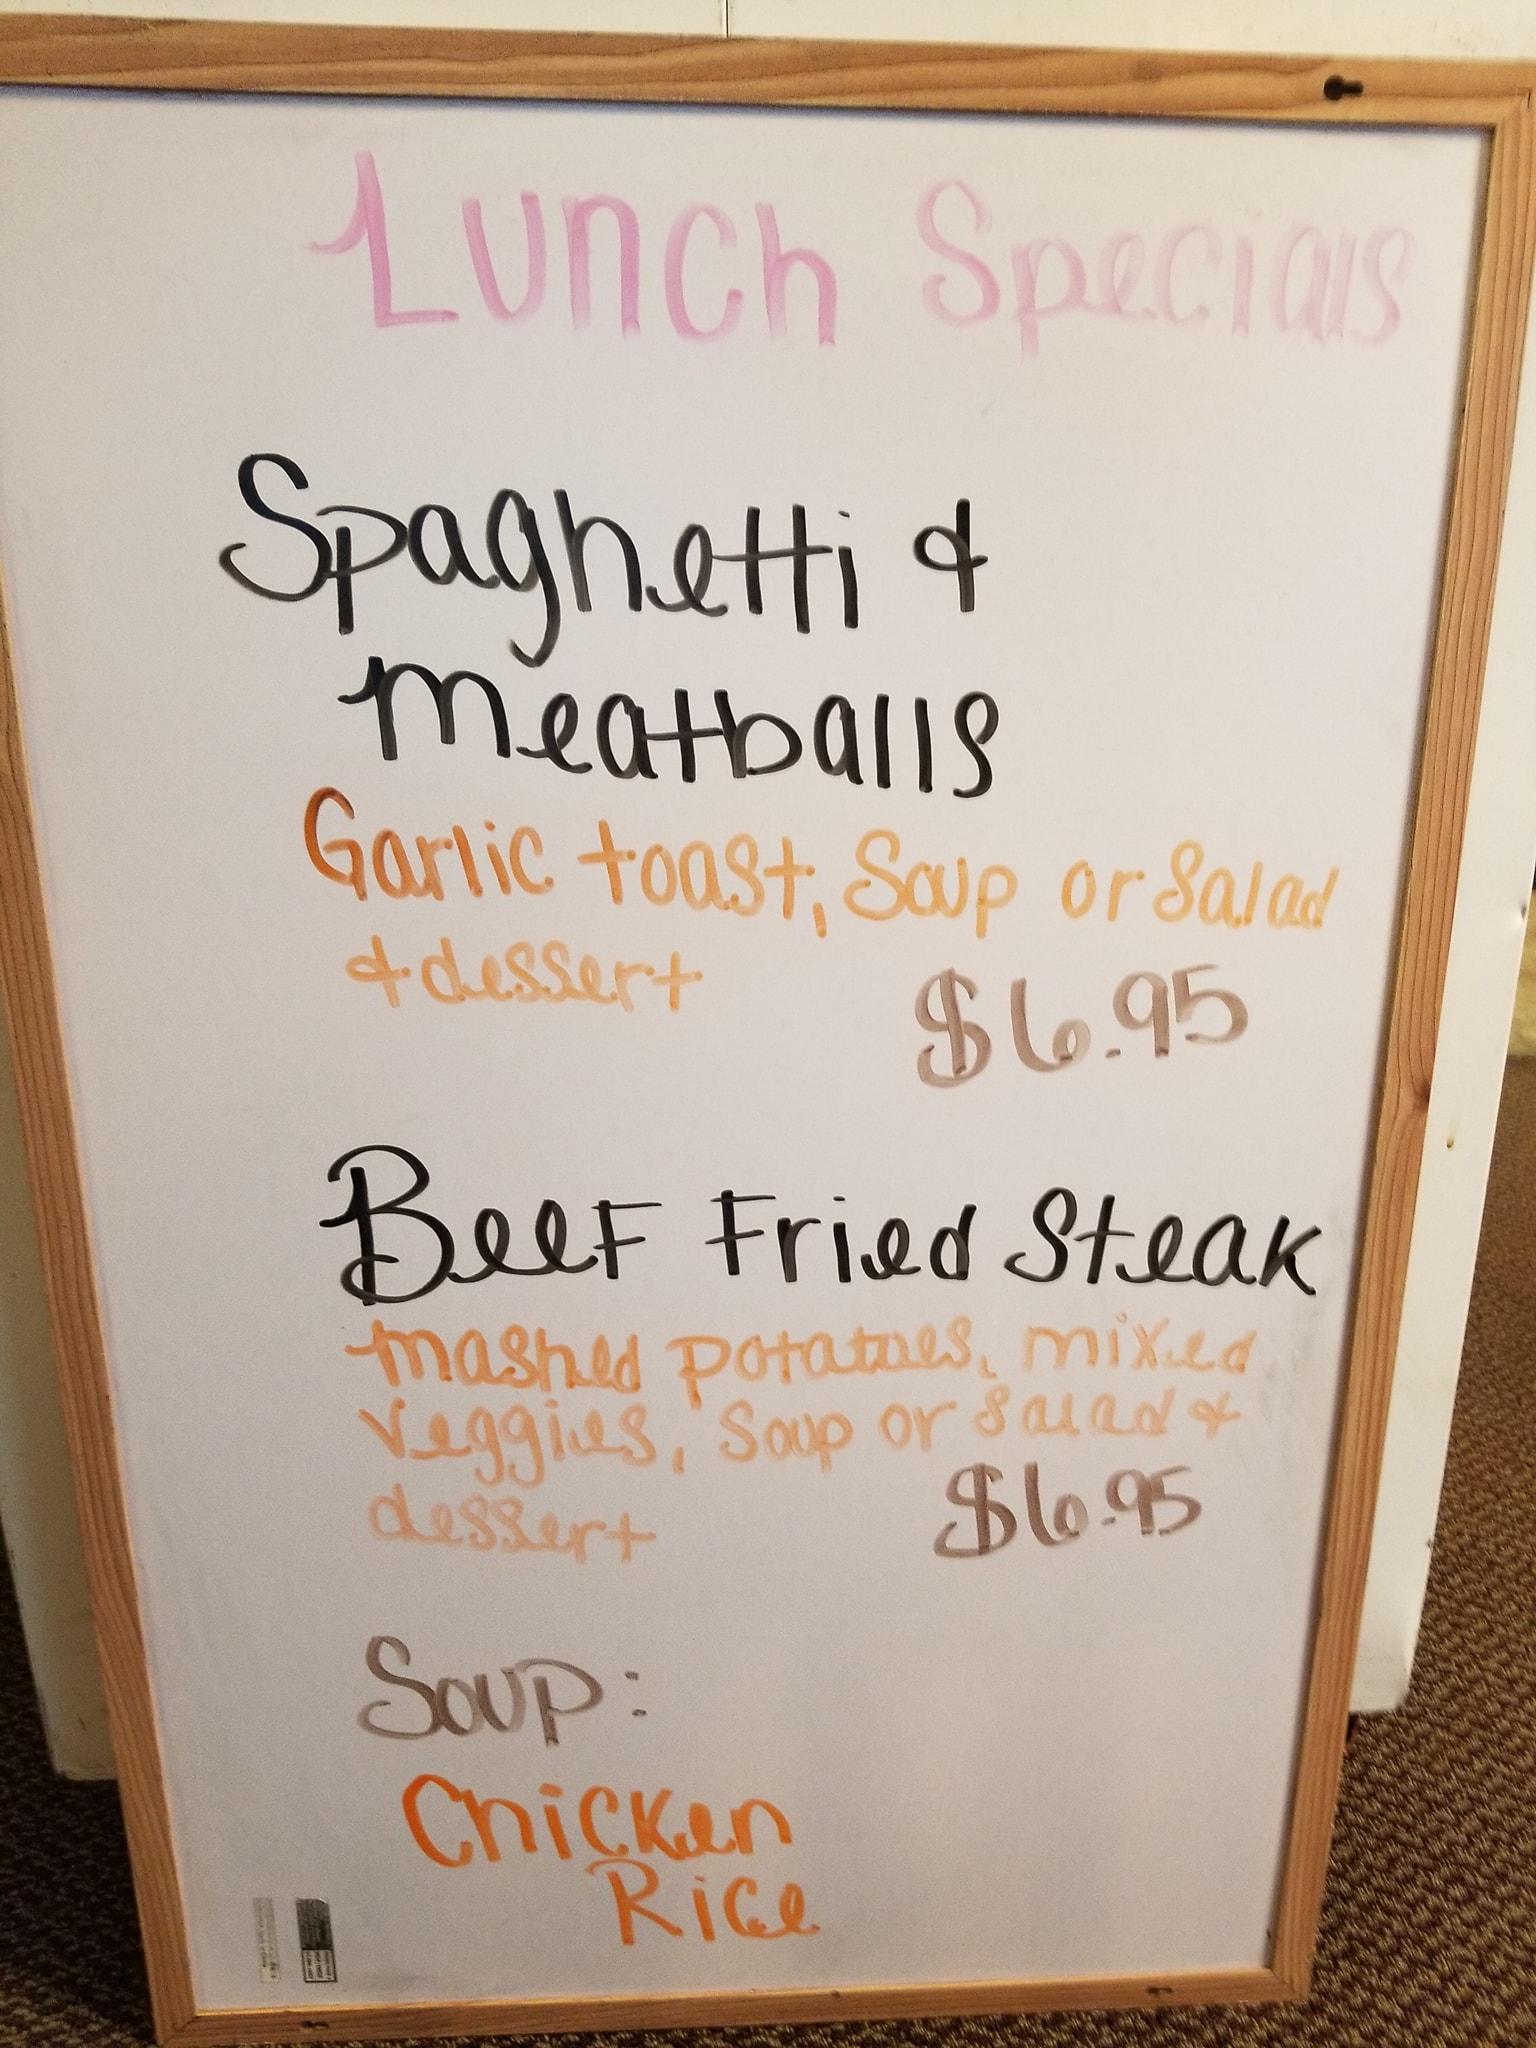 Lunch Specials
Spaghetti &
Meatballs
Garlic toast, Soup or Salad
& dessert
$6.95
Beef Fried Steak
mashed potatoes, mixed
veggies, soup or salad &
dessert
$6.95
Soup:
Chicken
Rice